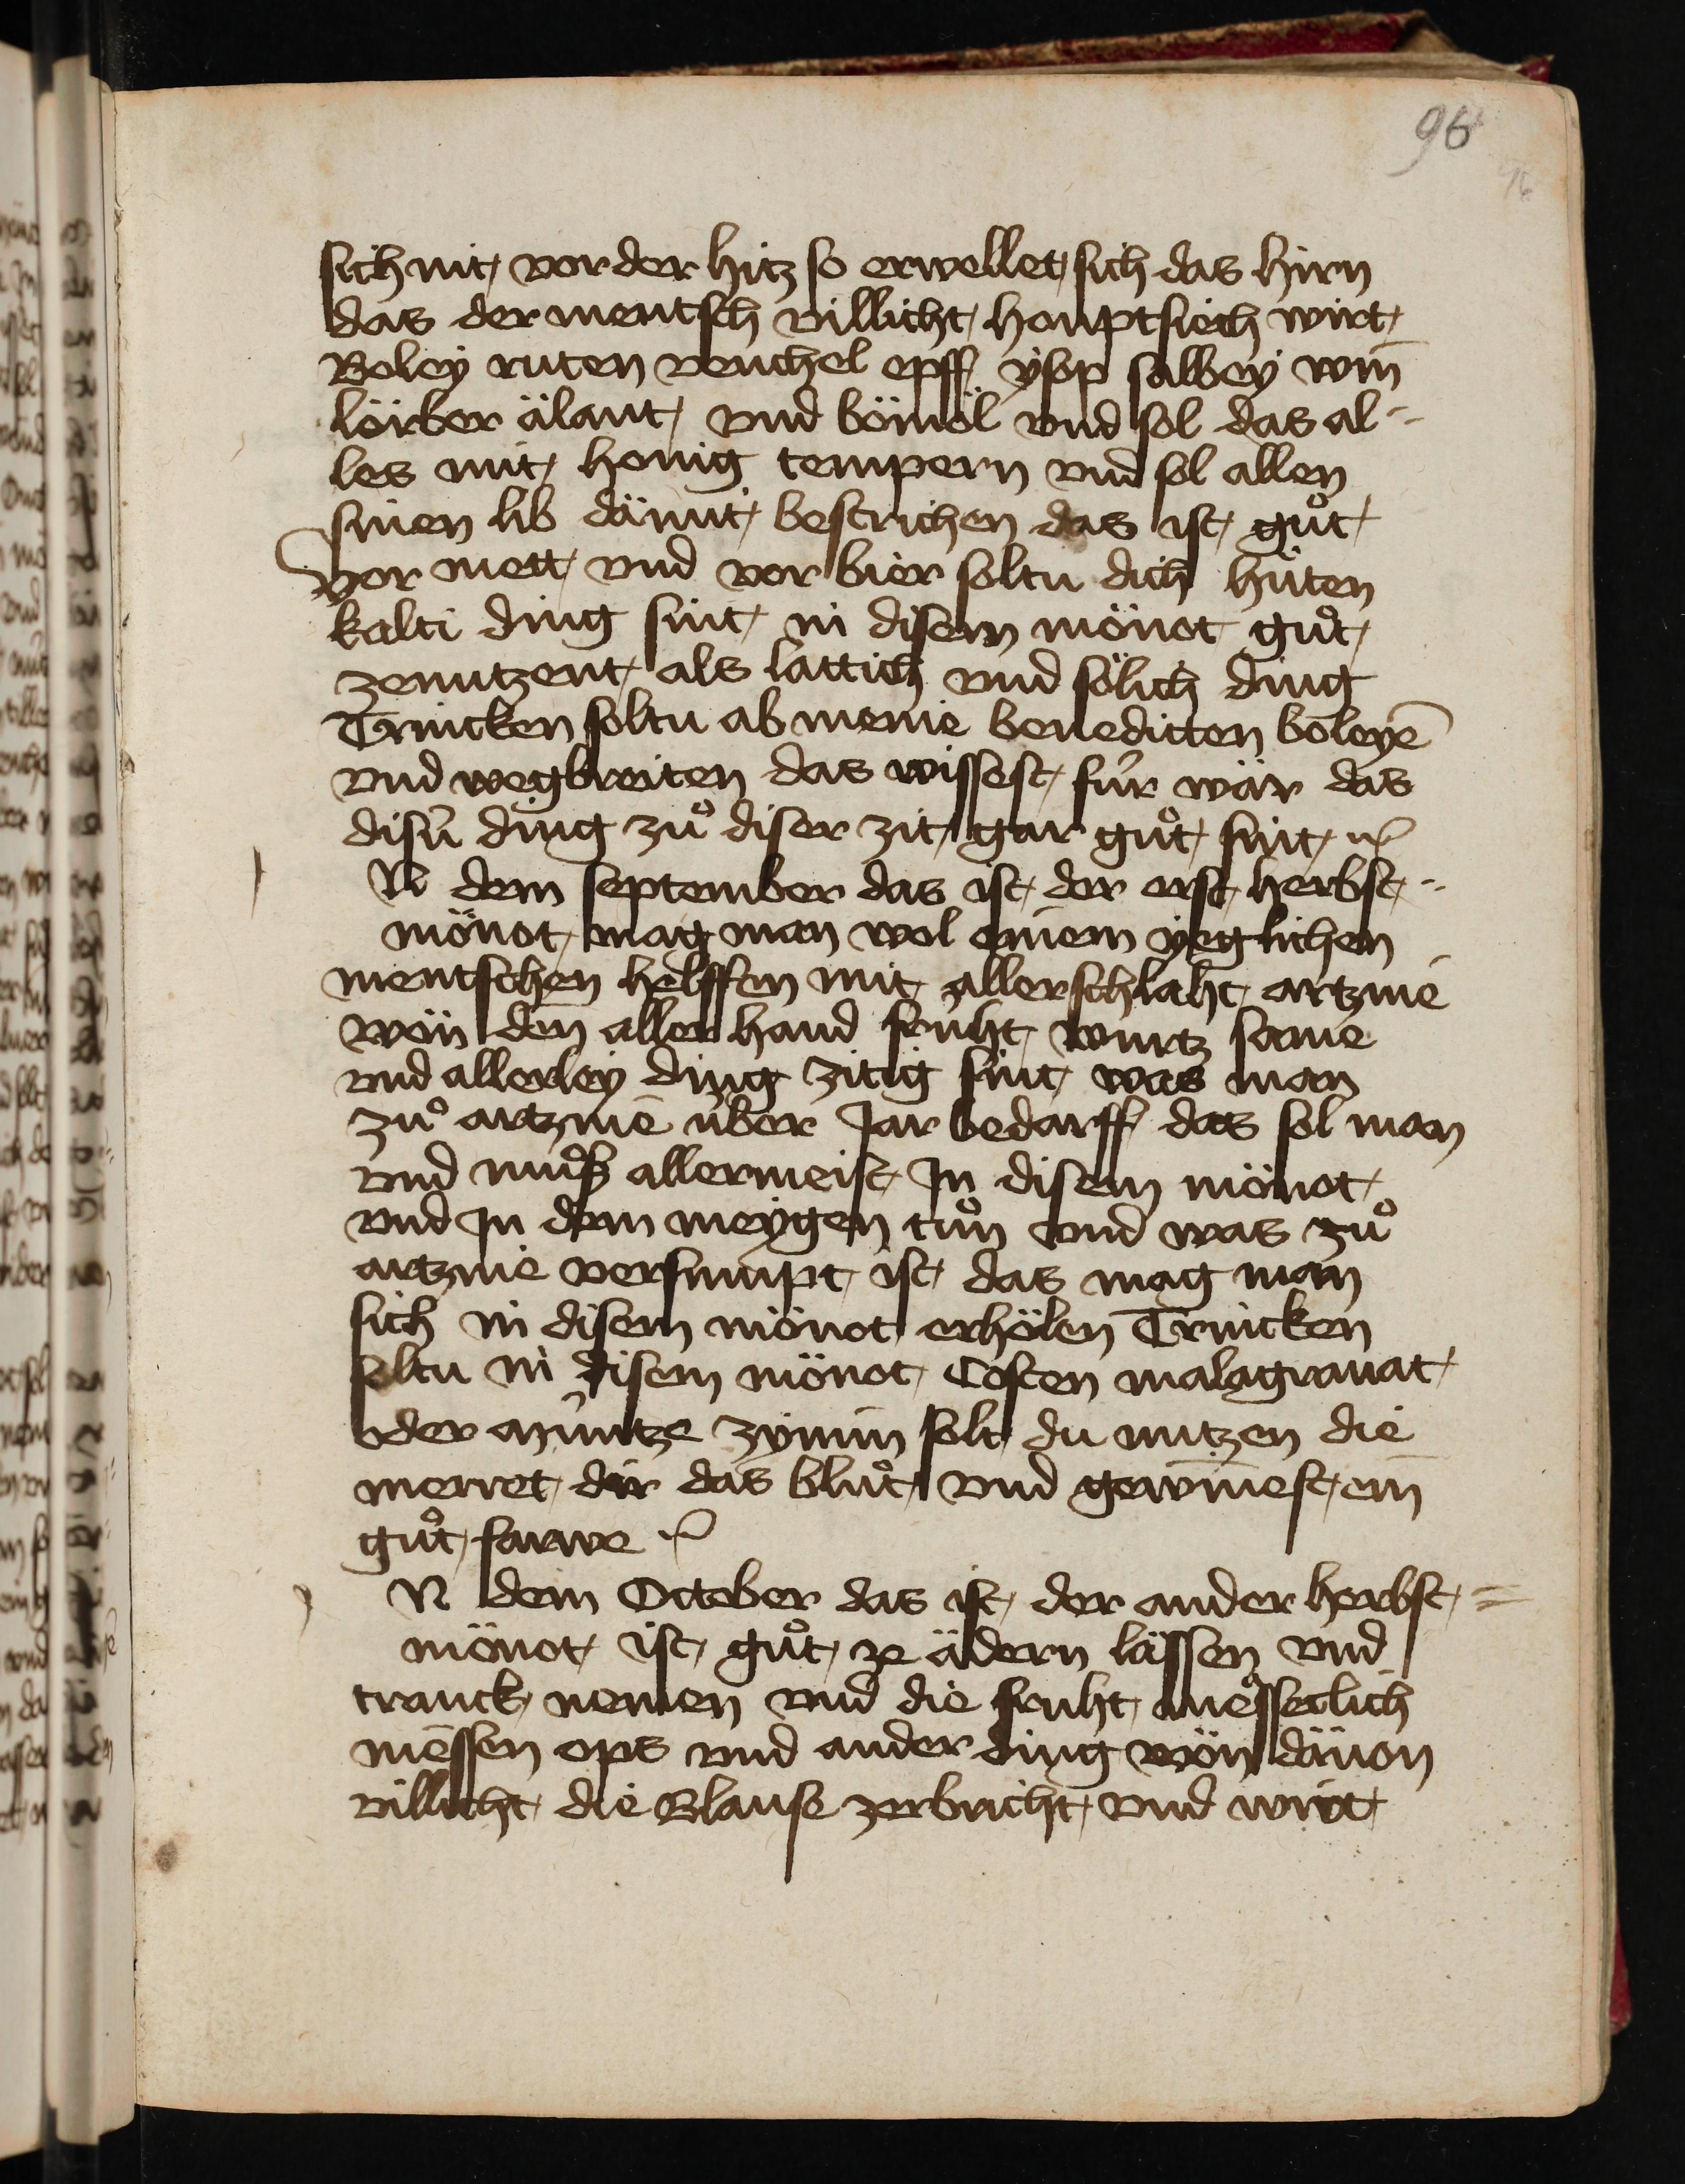 96
sich nit vor der hitz so erwellet sich das hirn
das der mentsch villicht houptsiech wirt
Boley ruten venchel epff ysop salbey win̄
lörber älant vnd bömöl vnd sol das al-
les mit honig tempern vnd sol allen
sinen lib dämit bestrichen das ist gůt
Vor mett vnd vor bier soltu dich hüten
kalti ding sint in disem mönot gůt
zenutzent als lattich vnd sölich ding
Trincken soltu ab menie benedicten boleyē
vnd wegbreiten das wissest für wär das
disü ding zů diser zit gar gůt sint
N dem september das ist der erst herbst-
mönot mag man wol einem yeglichen
mentschen helffen mit allerschlaht artznie
wön den aller hand fruht wurtz some
vnd allerley ding zitig sint was man
zů artznie über Jar bedarff das sol man
vnd můß allermeist Jn disem mönot
vnd Jn dem meygen tůn vnd was zů
artznie versumpt ist das mag man
sich in disem mönot erhölen Trincken
soltu in disem mönot Costen malagranat
oder müntze zymin solt du nutzen die
merret dir das blůt vnd gewinnest ein
gůt farwe
N dem October das ist der ander herbst=
mönot ist gůt ze ädern lässen vnd
tranck nemen vnd die fruht messeclich
niessen ops vnd ander ding wön dävon
villicht die Blause zerbricht vnd wirt